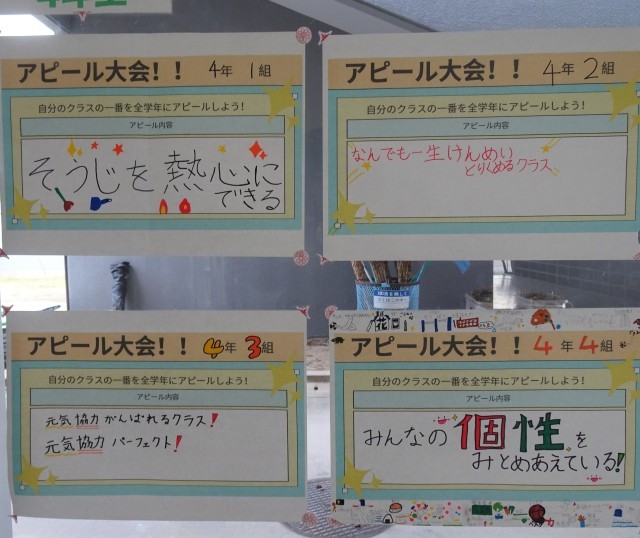 アピール大会！！ 4年 1組
自分のクラスの一番を全学年にアピールしよう！
アピール内容
そうじを熱心に
できる
アピール大会！！ 4年 2組
自分のクラスの一番を全学年にアピールしよう！
アピール内容
なんでも一生けんめい
とりくめるクラス
アピール大会！！ 4年 3組
自分のクラスの一番を全学年にアピールしよう！
アピール内容
元気協力がんばれるクラス！
元気協力パーフェクト！
アピール大会！！ 4年 4組
自分のクラスの一番を全学年にアピールしよう！
アピール内容
みんなの個性を
みとめあえている！